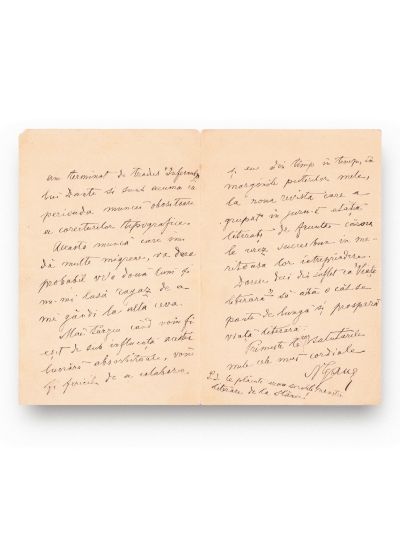 am terminat de tradus Infernul
lui Dante și sunt acuma în
perioada muncei obositoare
a corecturilor tipografice.
Aceastǎ muncă care îmi
dă multe migrene, va dura
probabil vre-o două luni și
nu-mi lasă răgaz de a
mă gândi la altă ceva.
Mai târziu când voiu fi
eșit de sub influența acestei
lucrări absorbitoare, voiu
fi fericit de a colabora
și eu din timp în timp, în
marginile puterilor mele,
la noua revista care a
grupat în jurul
literați de frunte cărora
le urez succes bun în
lor întreprindere.
Doresc deci din suflet ca
literară" să aibă o cât se
poate de lungă și prosperă
viață literară.
Primește te rog salutările
mele cele mai cordiale
N Gane
P.S.
literare de la